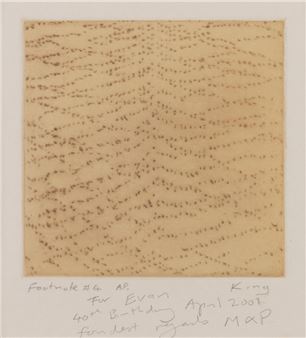 Footnote #4 AP. King
For Evan
40th Birthday April 2007
fondest regards M&P